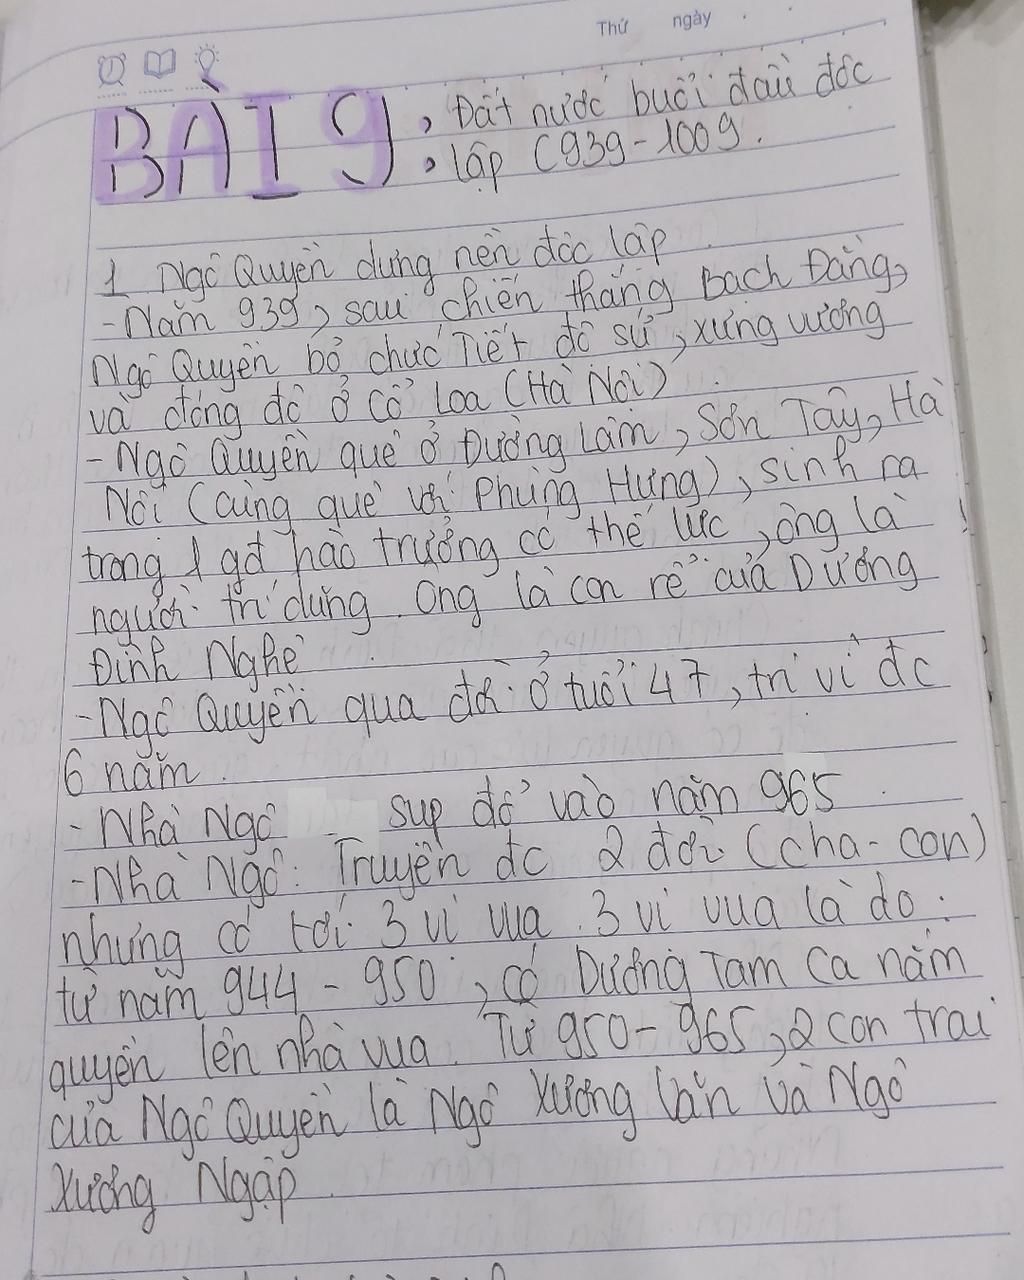 Thứ ngày
BÀI 9: Đất nước buổi đầu độc
lập (939-1009.
1 Ngô Quyền dựng nền độc lập
-Năm 939, sau chiến thắng Bạch Đằng,
Ngô Quyền bỏ chức Tiết độ sứ, xưng vương
và đóng đô ở Cổ Loa (Hà Nội)
-Ngô Quyền quê ở Đường Lâm, Sơn Tây, Hà
Nội (cùng quê với Phùng Hưng), sinh ra
trong 1 gđ hào trưởng có thế lực, ông là
người trí dũng. Ông là con rể của Dương
Đình Nghệ
-Ngô Quyền qua đời ở tuổi 47, trị vì đc
6 năm.
-Nhà Ngô sụp đổ vào năm 965.
-Nhà Ngô: Truyền đc 2 đời (cha-con)
nhưng có tới 3 vị vua. 3 vị vua là do:
từ năm 944-950, có Dương Tam Ca nắm
quyền lên nhà vua. Từ 950-965, 2 con trai
của Ngô Quyền là Ngô Xương Văn và Ngô
Xương Ngập